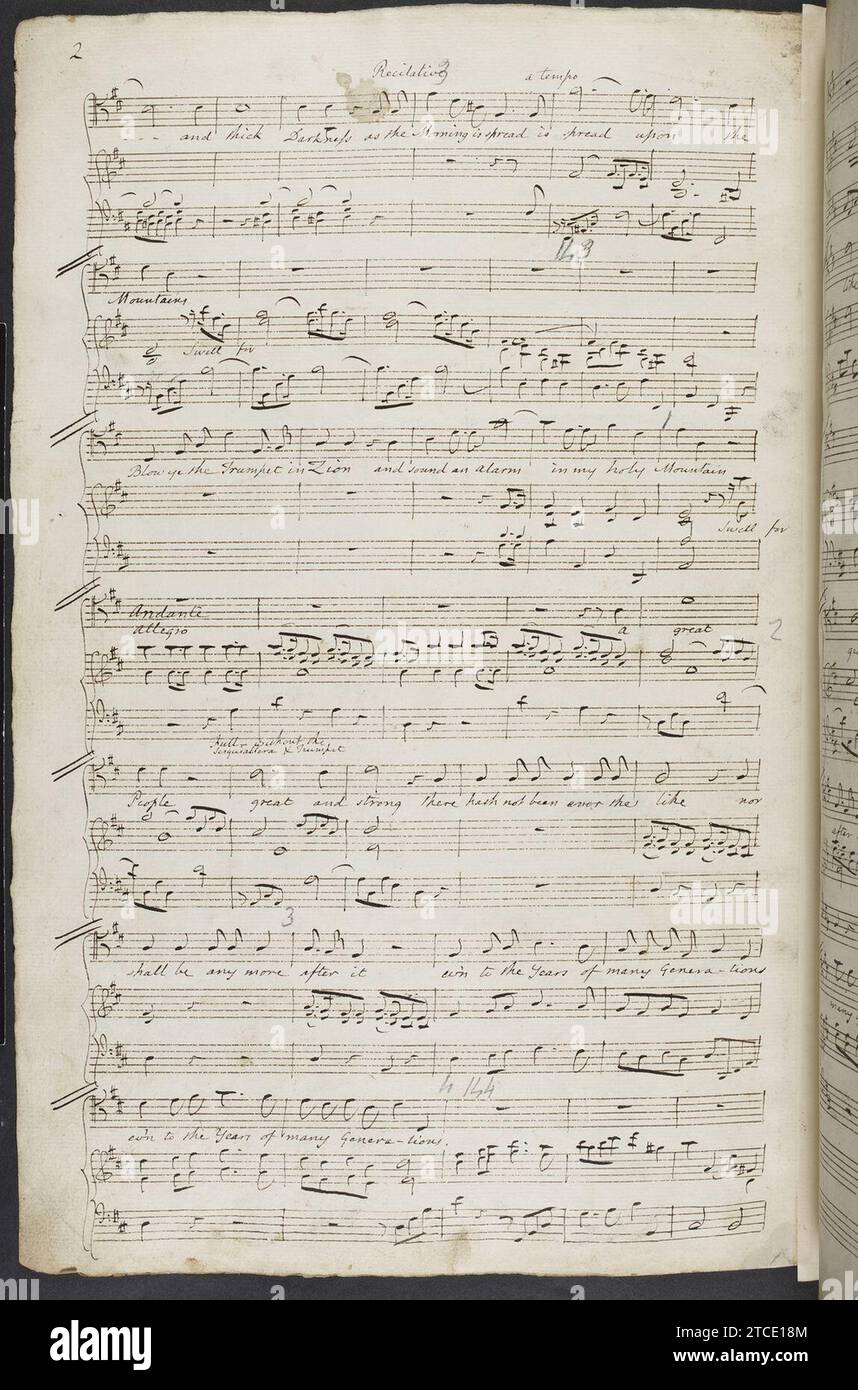 2
Recitative
a tempo
and thick Darkness as the Morning is spread is spread upon the
143
Mountains
Swell for
Blow ye the Trumpet in Zion and sound an Alarm in my holy Mountain
Swell for
Andante
allegro
a great
2
Full without the
Sesquialtera & Trumpet
People great and strong there hath not been ever the like nor
3
shall be any more after it ev'n to the Years of many Genera-tions
144
ev'n to the Years of many Genera-tions.
alamy
alamy
Image ID: 2TCE18M
www.alamy.com